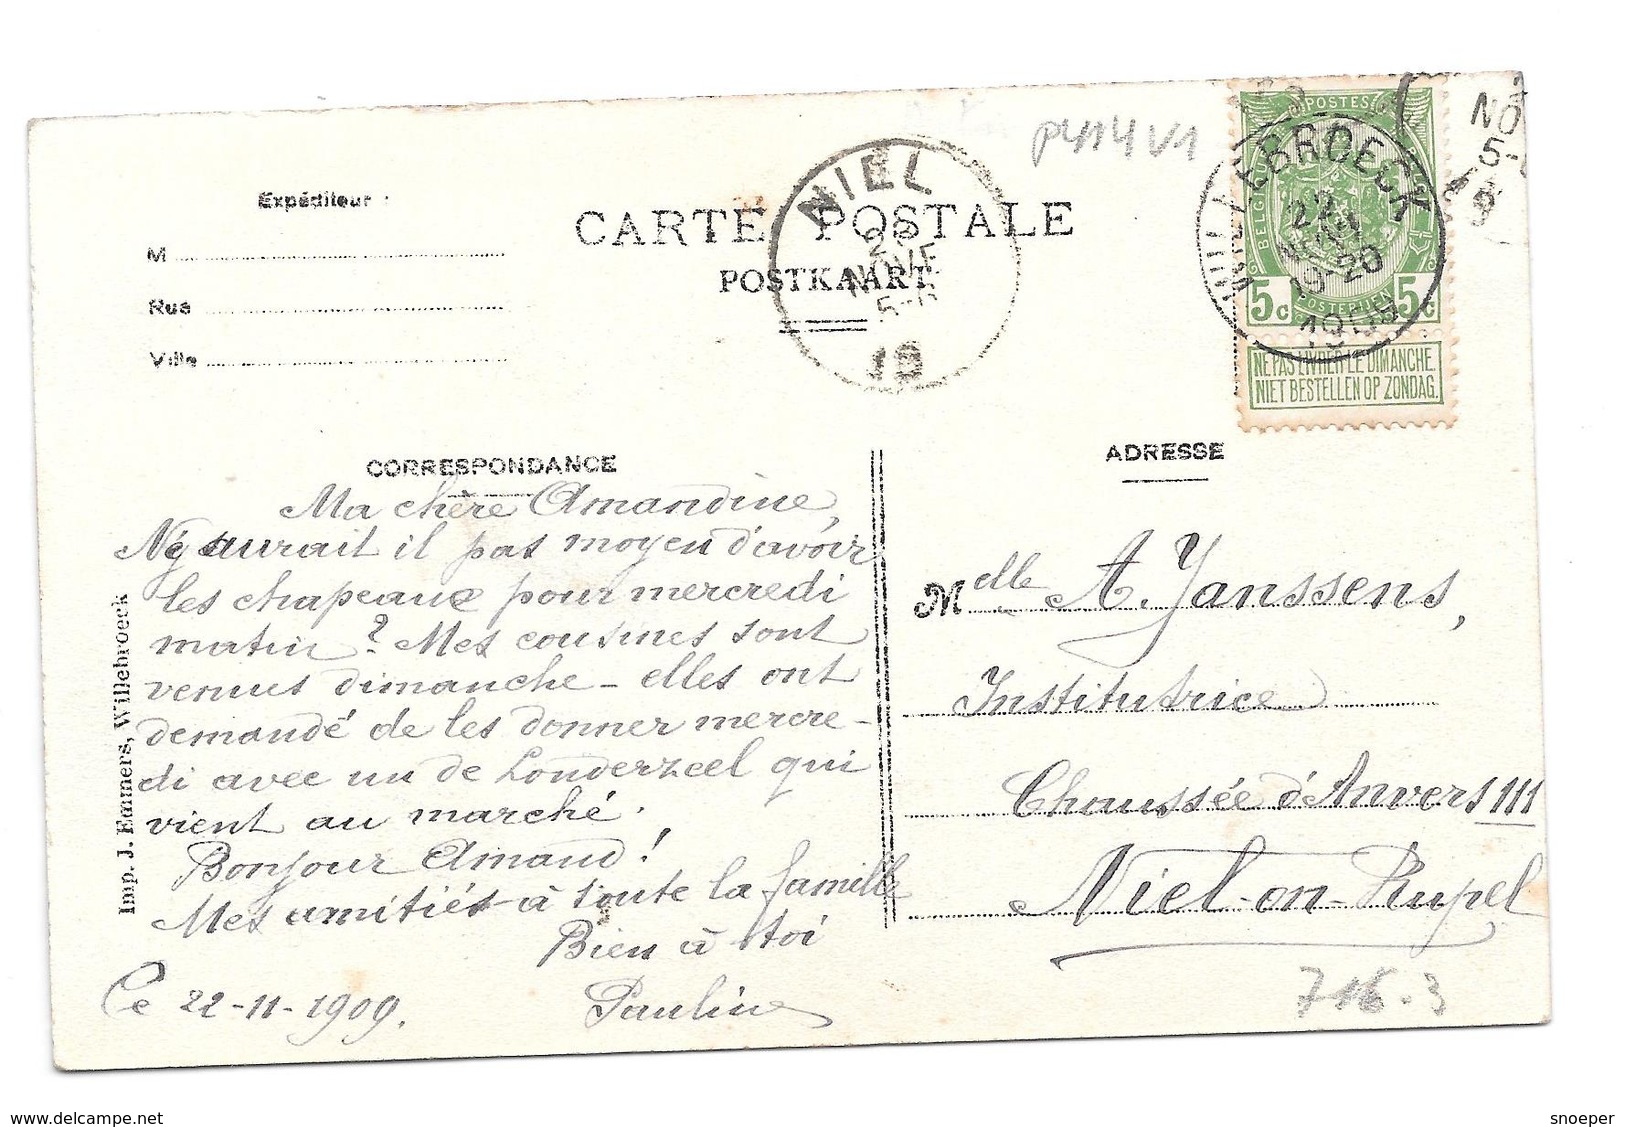 P414 V1
Expéditeur :
CARTE POSTALE
POSTKAART
M
Rue
Ville
NIEL
NOVE
5-6
WILLEBROECK
22
NOV
19-20
1909
NO
5-
POSTES
BELGIQUE
5c 5c
POSTERIJEN
NE PAS LIVRER LE DIMANCHE.
NIET BESTELLEN OP ZONDAG.
CORRESPONDANCE
ADRESSE
Ma chère Amandine,
N'y aurait il pas moyen d'avoir
les chapeaux pour mercredi
matin? Mes cousines sont
venues dimanche – elles ont
demandé de les donner mercre-
di avec un de Londerzeel qui
vient au marché.
Bonjour Amand!
Mes amitiés à toute la famille
Bien à toi
Pauline
Ce 22-11-1909.
Melle A. Janssens,
Institutrice
Chaussée d'Anvers 111
Niel-on-Rupel
716-3
Imp. J. Emmers, Willebroeck
www.delcampe.net
snoeper